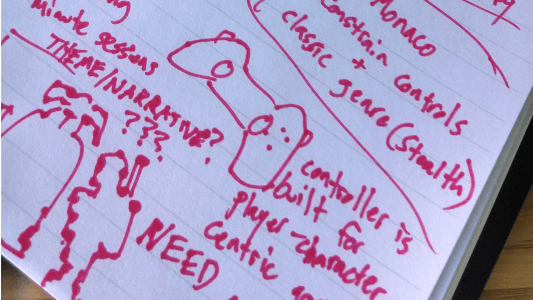 minute sessions
THEME/NARRATIVE?
???
Monaco
Constrain controls
+
classic genre (stealth)
controller is
built for
player-character
centric
NEED